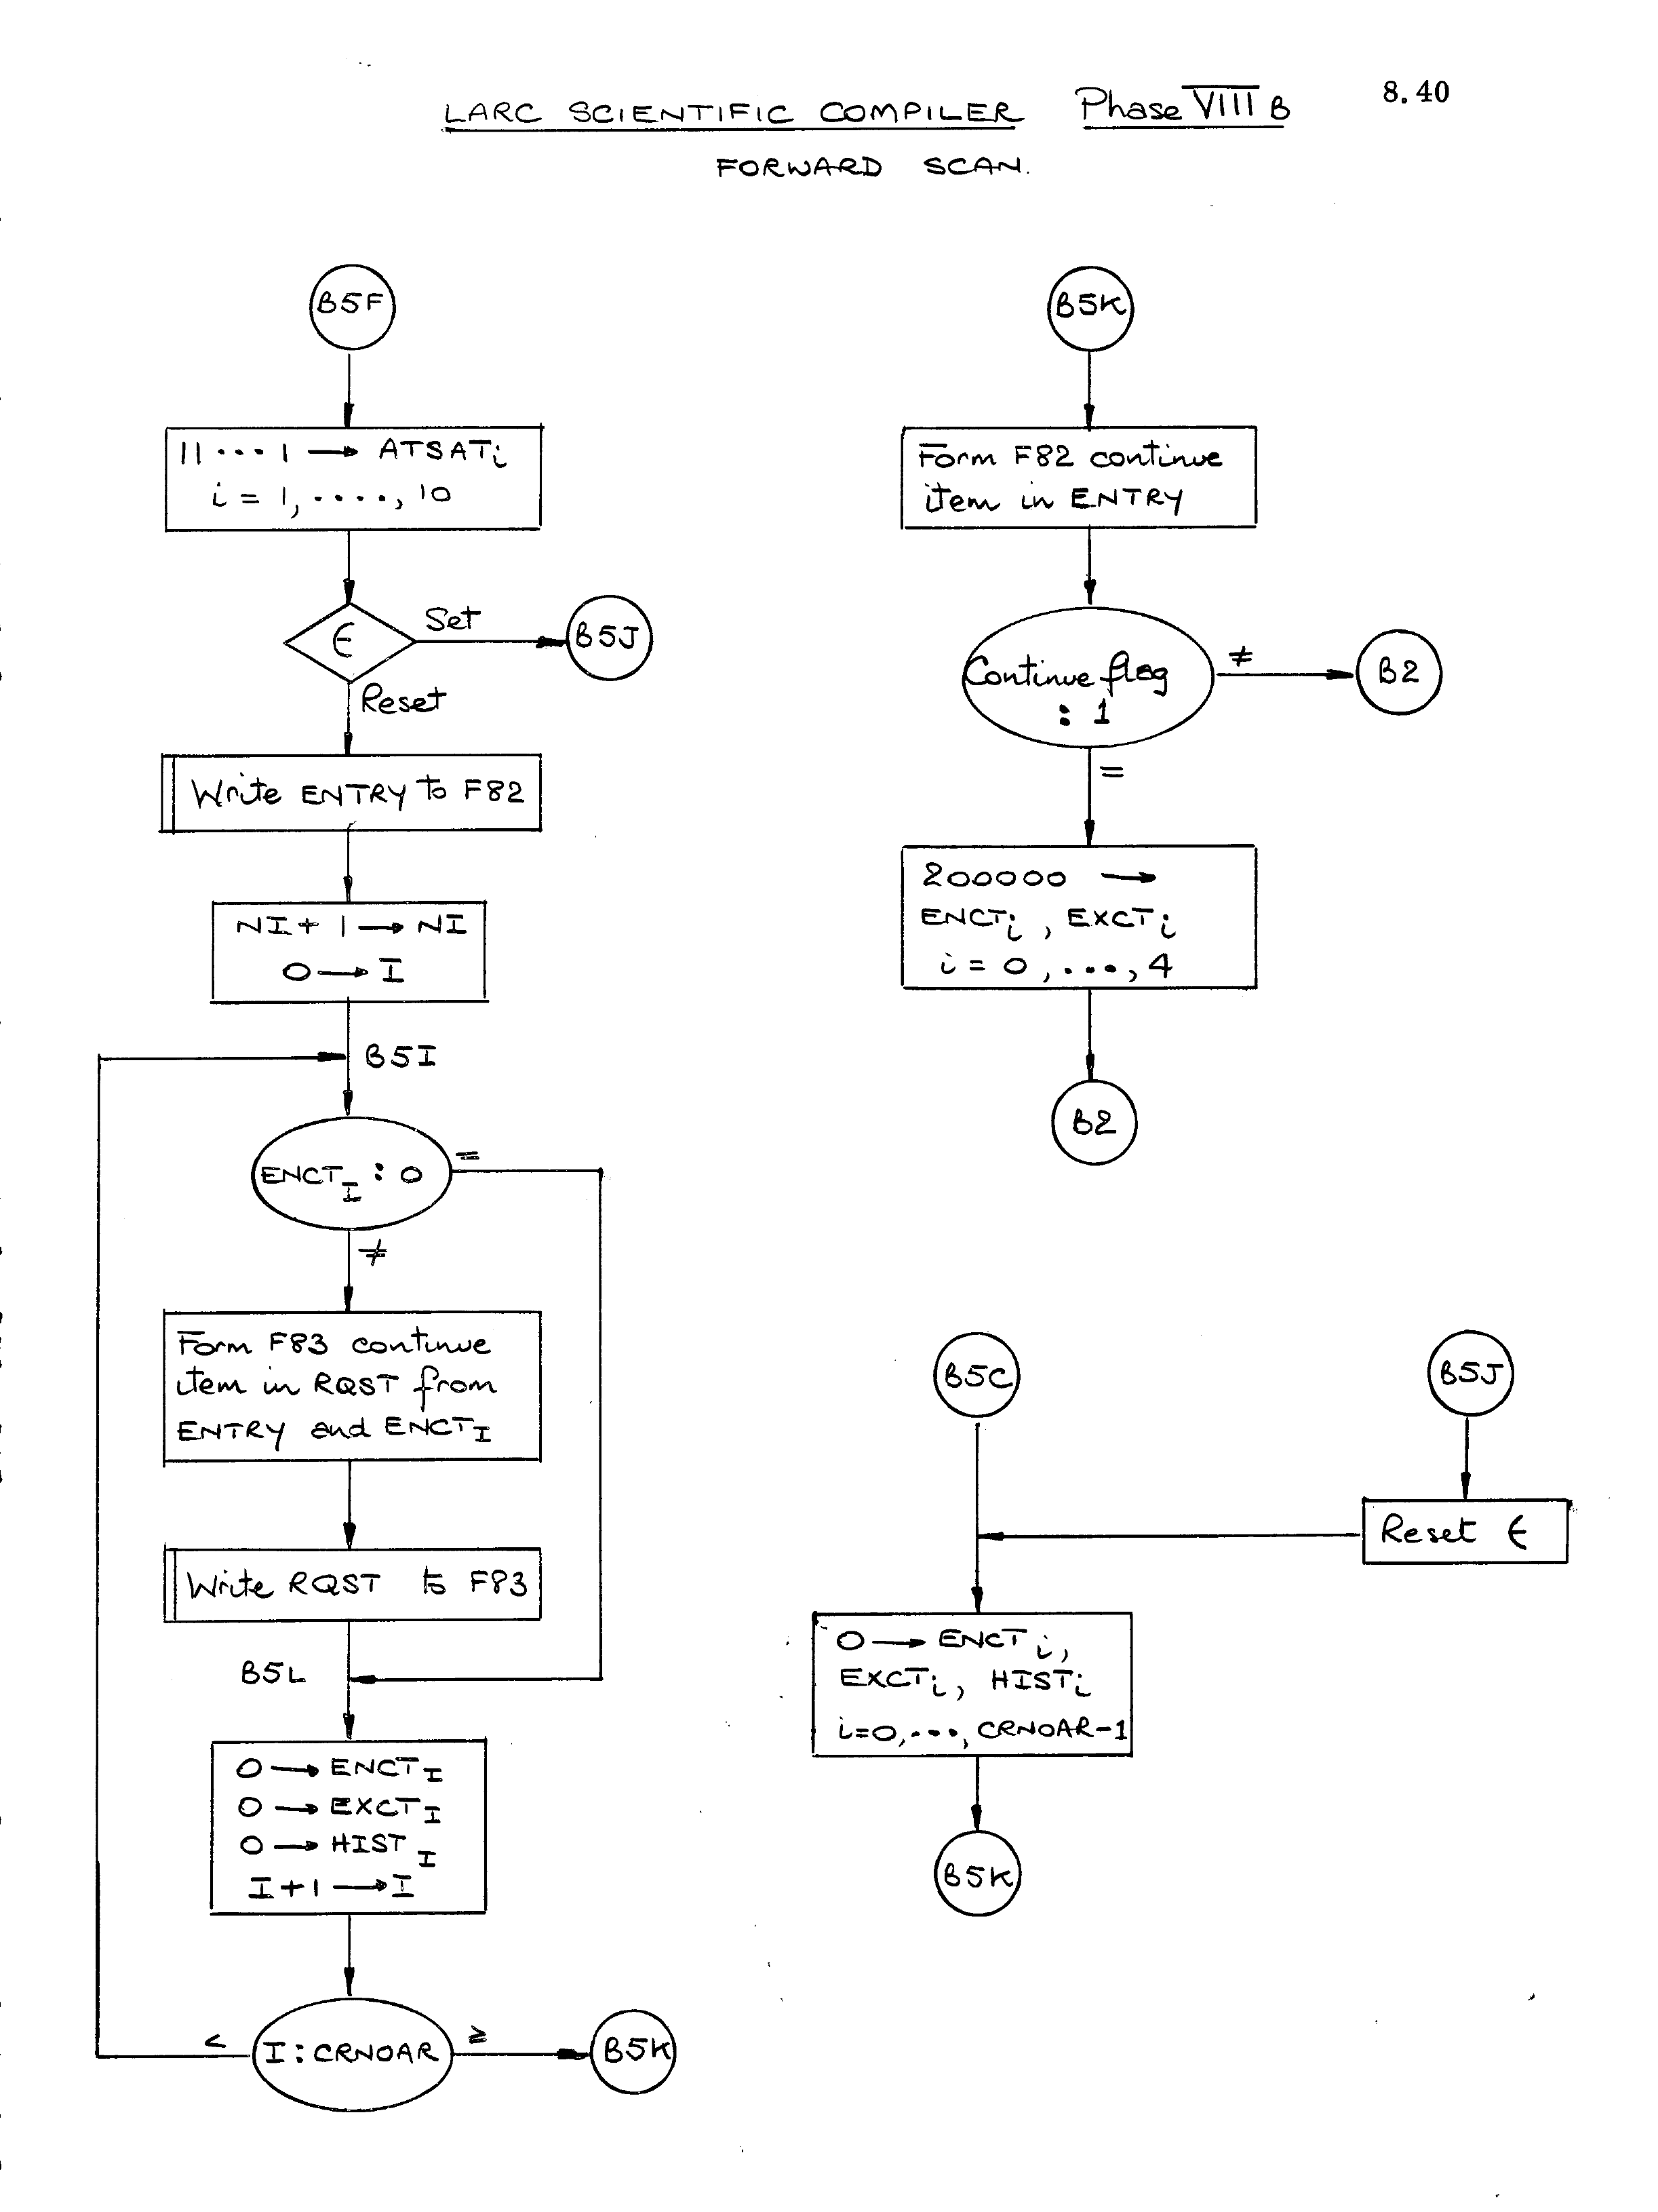 LARC SCIENTIFIC COMPILER Phase VIII B 8.40
FORWARD SCAN.
B5F
11 ... 1 → ATSATi
i = 1, ...., 10
ϵ
Set
B5J
Reset
Write ENTRY to F82
NI + 1 → NI
0 → I
B5I
ENCTI : 0
=
≠
Form F83 continue
item in RQST from
ENTRY and ENCTI
Write RQST to F83
B5L
0 → ENCTI
0 → EXCTI
0 → HISTI
I + 1 → I
I : CRNOAR
<
≥
B5K
B5K
Form F82 continue
item in ENTRY
Continue flag
: 1
≠
B2
=
200000 →
ENCTi , EXCTi
i = 0 , ..., 4
B2
B5C
B5J
Reset ϵ
0 → ENCTi,
EXCTi, HISTi
i=0,..., CRNOAR-1
B5K